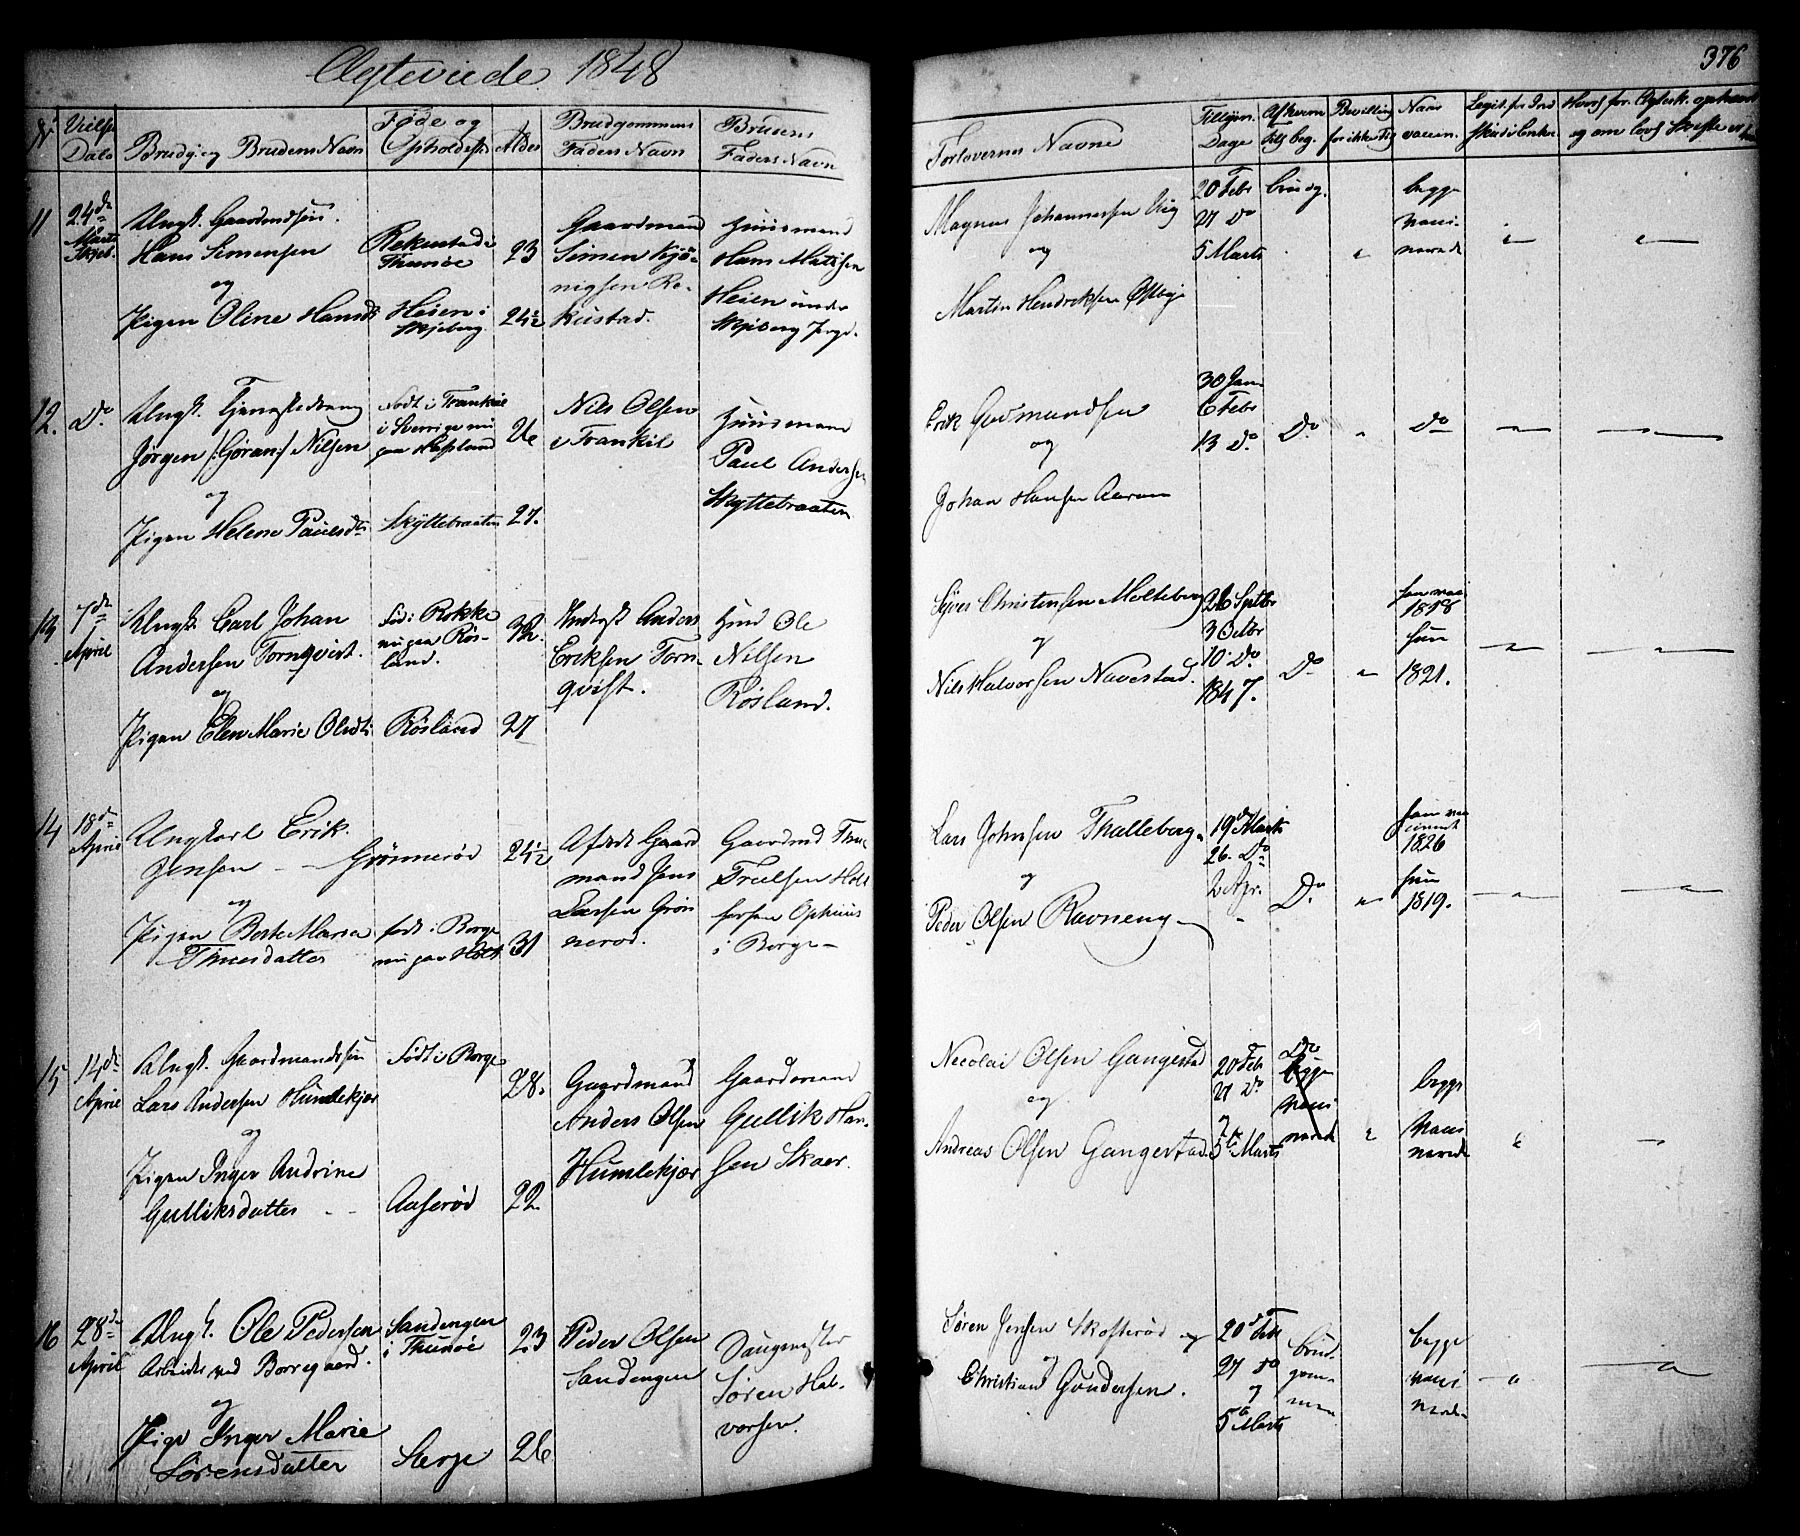 Ægteviede 1848
376
No
Vielse Dato
Brudg. og Brudens Navn
Føde og Opholdssted
Alder
Brudgommens Faders Navn
Brudens Faders Navn
Forlovernes Navne
Tillysn. Dage
Af hvem
Bevilling
Naar vaccin.
11
24de Marts
Ungk. Gaardmdsøn
Hans Simensen
og
Pigen Oline Hansdt
Rekustad i
Thunøe
Heien i
Skjeberg
23
24½
Gaardmand
Simen Kjø-
nigsen Re-
kustad.
Huusmand
Hans Matisen
Heien under
Skjeberg
Magnus Johannesen
og
Martin Hendriksen Østbye
20 Febr
27 Do
5 Marts
brudg.
begge
12.
Do
Ungk. Tjenestedreng
Jørgen /:Gøran:/ Nilsen
og
Pigen Helene Paulsdtr
Født i Trankil
i Sverrige nu
paa Hafslund
Skyttebraaten
26
27.
Nils Olsen
i Trankil
Huusmand
Paul Andersen
Skyttebraaten
Erik Gudmundsen
og
Johan Hansen
30 Jan
6 Febr
13 Do
Do
Do
13
7de April
Ungk. Carl Johan
Andersen Tornqvist.
og
Pigen Elen Marie Olsdt.
Fød i Rokke
nu paa Røs-
land.
Røsland
27
Anders
Eriksen Torn-
qvist.
Ole
Nilsen
Røsland.
Syver Christensen Molteberg
og
Nils Halvorsen Navestad.
26 Septbr
3 Octbr
10 Do
1847.
Do
1818
hun
1821.
14
18de April
Ungkarl Erik
Jensen
og
Pigen Berte Maria
Thuesdatter
Grønnerød
født i Borge
nu paa Holt
24½
31
Afdøde Gaard
mand Jens
Larsen Grøn
nerød.
Gaardmd Thue
Truelsen Holt
i Borge
Lars Johnsen Thalleberg
og
Peder Olsen Ravneng
19de Marts
26. Do
2 Apr.
Do
1826
hun
1819.
15
14de April
Ungk. Gaardmandssøn
Lars Andersen Humlekjær
og
Pigen Inger Andrine
Gulliksdatter
Født i Borge
Aaserød
28.
22
Gaardmand
Anders Olsen
Humlekjær
Gaardmand
Gullik Han-
sen Skaar.
Necolai Olsen Gangestad
og
Andreas Olsen Gangestad
20 Febr
27 Do
5te Marts
Do
begge
16
28de April
Ungk. Ole Pedersen
Arbeider ved Borregaard.
og
Pige Inger Marie
Sørensdatter
Sandengen
i Thunøe
23
26
Peder Olsen
Sandengen
Søren Hal-
vorsen.
Søren Jensen Skofterød og
Christian Gundersen.
20de Feb
27 Do
og
5te Marts
brud-
gom-
men
begge